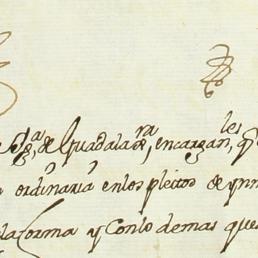 de Guadalara, encargan les, q
ordinaria en los pleitos de ynn
la forma y con lo demas que